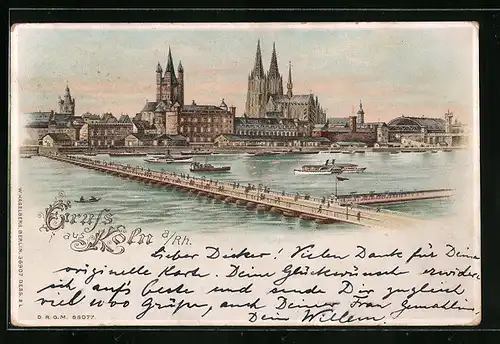 Gruss
aus Köln a/Rh.
Lieber Dicker! Vielen Dank für Deine
originelle Karte. Deine Glückwünsch erwider
ich aufs beste und sende Dir zugleich
viel 1000 Grüße, auch Deiner Frau Gemahlin.
Dein Willem.
W. HAGELBERG, BERLIN.
D. R. G. M. 88077.